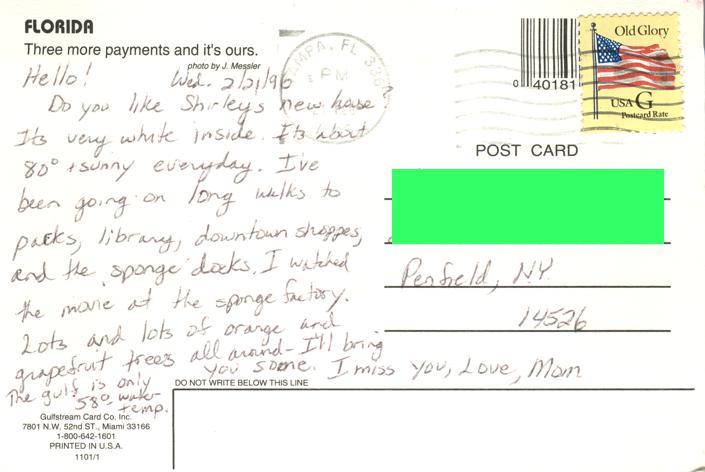 FLORIDA
Three more payments and it's ours.
photo by J. Messler
Hello! Wed. 2/21/96
Do you like Shirleys new house
Its very white inside. Its about
80° + sunny everyday. I've
been going on long walks to
parks, library, downtown shoppes,
and the sponge docks. I watched
the movie at the sponge factory.
Lots and lots of orange and
grapefruit trees all around - I'll bring
you some. I miss you, Love, Mom
The gulf is only
58° water
temp.
Gulfstream Card Co. Inc.
7801 N.W. 52nd ST., Miami 33166
1-800-642-1601
PRINTED IN U.S.A.
1101/1
TAMPA, FL
PM
0 40181
Old Glory
USA G
Postcard Rate
POST CARD
Penfield, N.Y.
14526
DO NOT WRITE BELOW THIS LINE